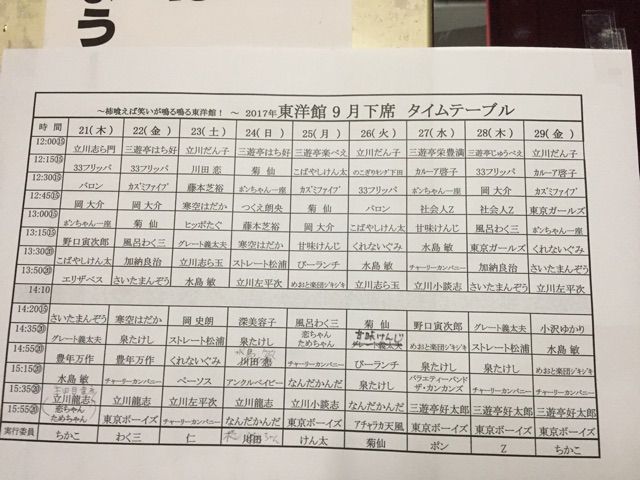 よう
～柿喰えば笑いが鳴る鳴る東洋館！～ 2017年 東洋館 9 月下席 タイムテーブル
時 間 21(木) 22(金) 23(土) 24(日) 25(月) 26(火) 27(水) 28(木) 29(金)
12:00⑮ 立川志ら門 三遊亭はち好 立川だん子 三遊亭はち好 三遊亭楽べえ 立川だん子 三遊亭栄豊満 三遊亭じゅうべえ 立川だん子
12:15⑮ 33フリッパ 33フリッパ 川田 恋 菊 仙 こばやしけん太 のこぎりキング下田 カルーア啓子 33フリッパ カルーア啓子
12:30⑮ バロン カズミファイブ 藤本芝裕 ポンちゃん一座 カズミファイブ 33フリッパ ポンちゃん一座 岡 大介 カズミファイブ
12:45⑮ 岡 大介 菊 仙 寒空はだか つくえ朗央 菊 仙 バロン 社会人Z 社会人Z 東京ガールズ
13:00⑮ ポンちゃん一座 菊 仙 ヒッポたぐ 藤本芝裕 岡 大介 ポンちゃん一座 岡 大介 菊 仙 ポンちゃん一座
13:15⑮ 野口寅次郎 風呂わく三 グレート義太夫 寒空はだか 甘味けんじ くれないぐみ 水島 敏 東京ガールズ くれないぐみ
13:30⑳ こばやしけん太 加納良治 立川志ら玉 ストレート松浦 びーランチ 水島 敏 チャーリーカンパニー 加納良治 水島 敏
13:50⑳ エリザベス さいたまんぞう 水島 敏 立川左平次 めおと楽団ジキジキ 立川志ら玉 立川小談志 さいたまんぞう 立川左平次
14:10
14:20⑮ さいたまんぞう 寒空はだか 岡 史朗 深美容子 風呂わく三 菊 仙 野口寅次郎 グレート義太夫 小沢ゆかり
14:35⑳ グレート義太夫 泉たけし ストレート松浦 恋ちゃんためちゃん 甘味けんじ めおと楽団ジキジキ ストレート松浦 水島 敏
14:55⑳ 豊年万作 豊年万作 くれないぐみ なんだかんだ びーランチ 水島 敏 泉たけし 泉たけし
15:15⑳ 水島 敏 チャーリーカンパニー ペーソス アンクルベイビー なんだかんだ 泉たけし バラエティーバンドザ・カンカンズ チャーリーカンパニー めおと楽団ジキジキ
15:35⑳ 立川龍志 立川龍志 立川左平次 立川龍志 立川小談志 なんだかんだ 三遊亭好太郎 三遊亭好太郎 三遊亭好太郎
15:55⑳ 恋ちゃんためちゃん 東京ボーイズ チャーリーカンパニー なんだかんだ 東京ボーイズ アチャラカ天風 東京ボーイズ 東京ボーイズ 東京ボーイズ
実行委員 ちかこ わく三 仁 川田 けん太 菊仙 ポン Z ちかこ